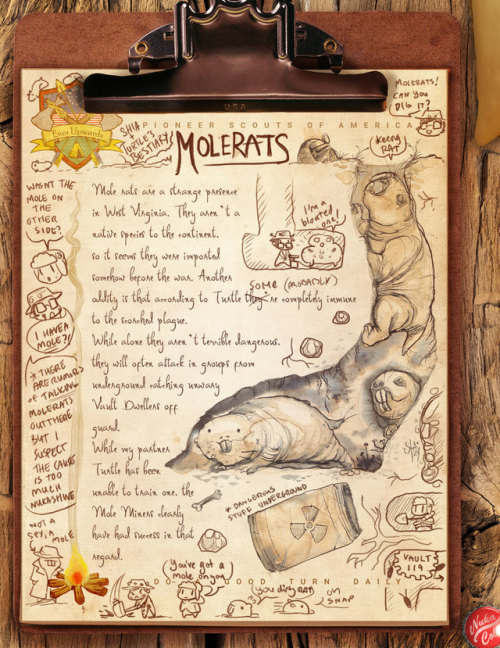 USA
PIONEER SCOUTS OF AMERICA
Ever Upwards
SHIA
TURTLE'S
BESTIARY
MOLERATS
MOLERATS!
CAN YOU
DIG IT?
WASNT THE
MOLE ON
THE
OTHER
SIDE?
I HAVE A
MOLE?!
* THERE
ARE RUMORS
OF TALKING
MOLERATS
OUT THERE
BUT I
SUSPECT
THE CAUSE
IS TOO
MUCH
NUKASHINE
NOT A
MOLE
Mole rats are a strange presence
in West Virginia. They aren't a
native species to the continent.
so it seems they were imported
somehow before the war. Another
oddity is that according to Turtle they're completely immune
SOME (PROBABLY)
to the scorched plague.
While alone they aren't terrible dangerous.
they will often attack in groups from
underground catching unwary
Vault Dwellers off
guard.
While my partner
Turtle has been
unable to train one. the
Mole Miners clearly
have had success in that
regard.
I'm a
bloated
one!
* DANGEROUS
STUFF UNDERGROUND
VAULT
DO A GOOD TURN DAILY
You've got a
mole on you
You dirty rat
OH
SNAP
Nuka